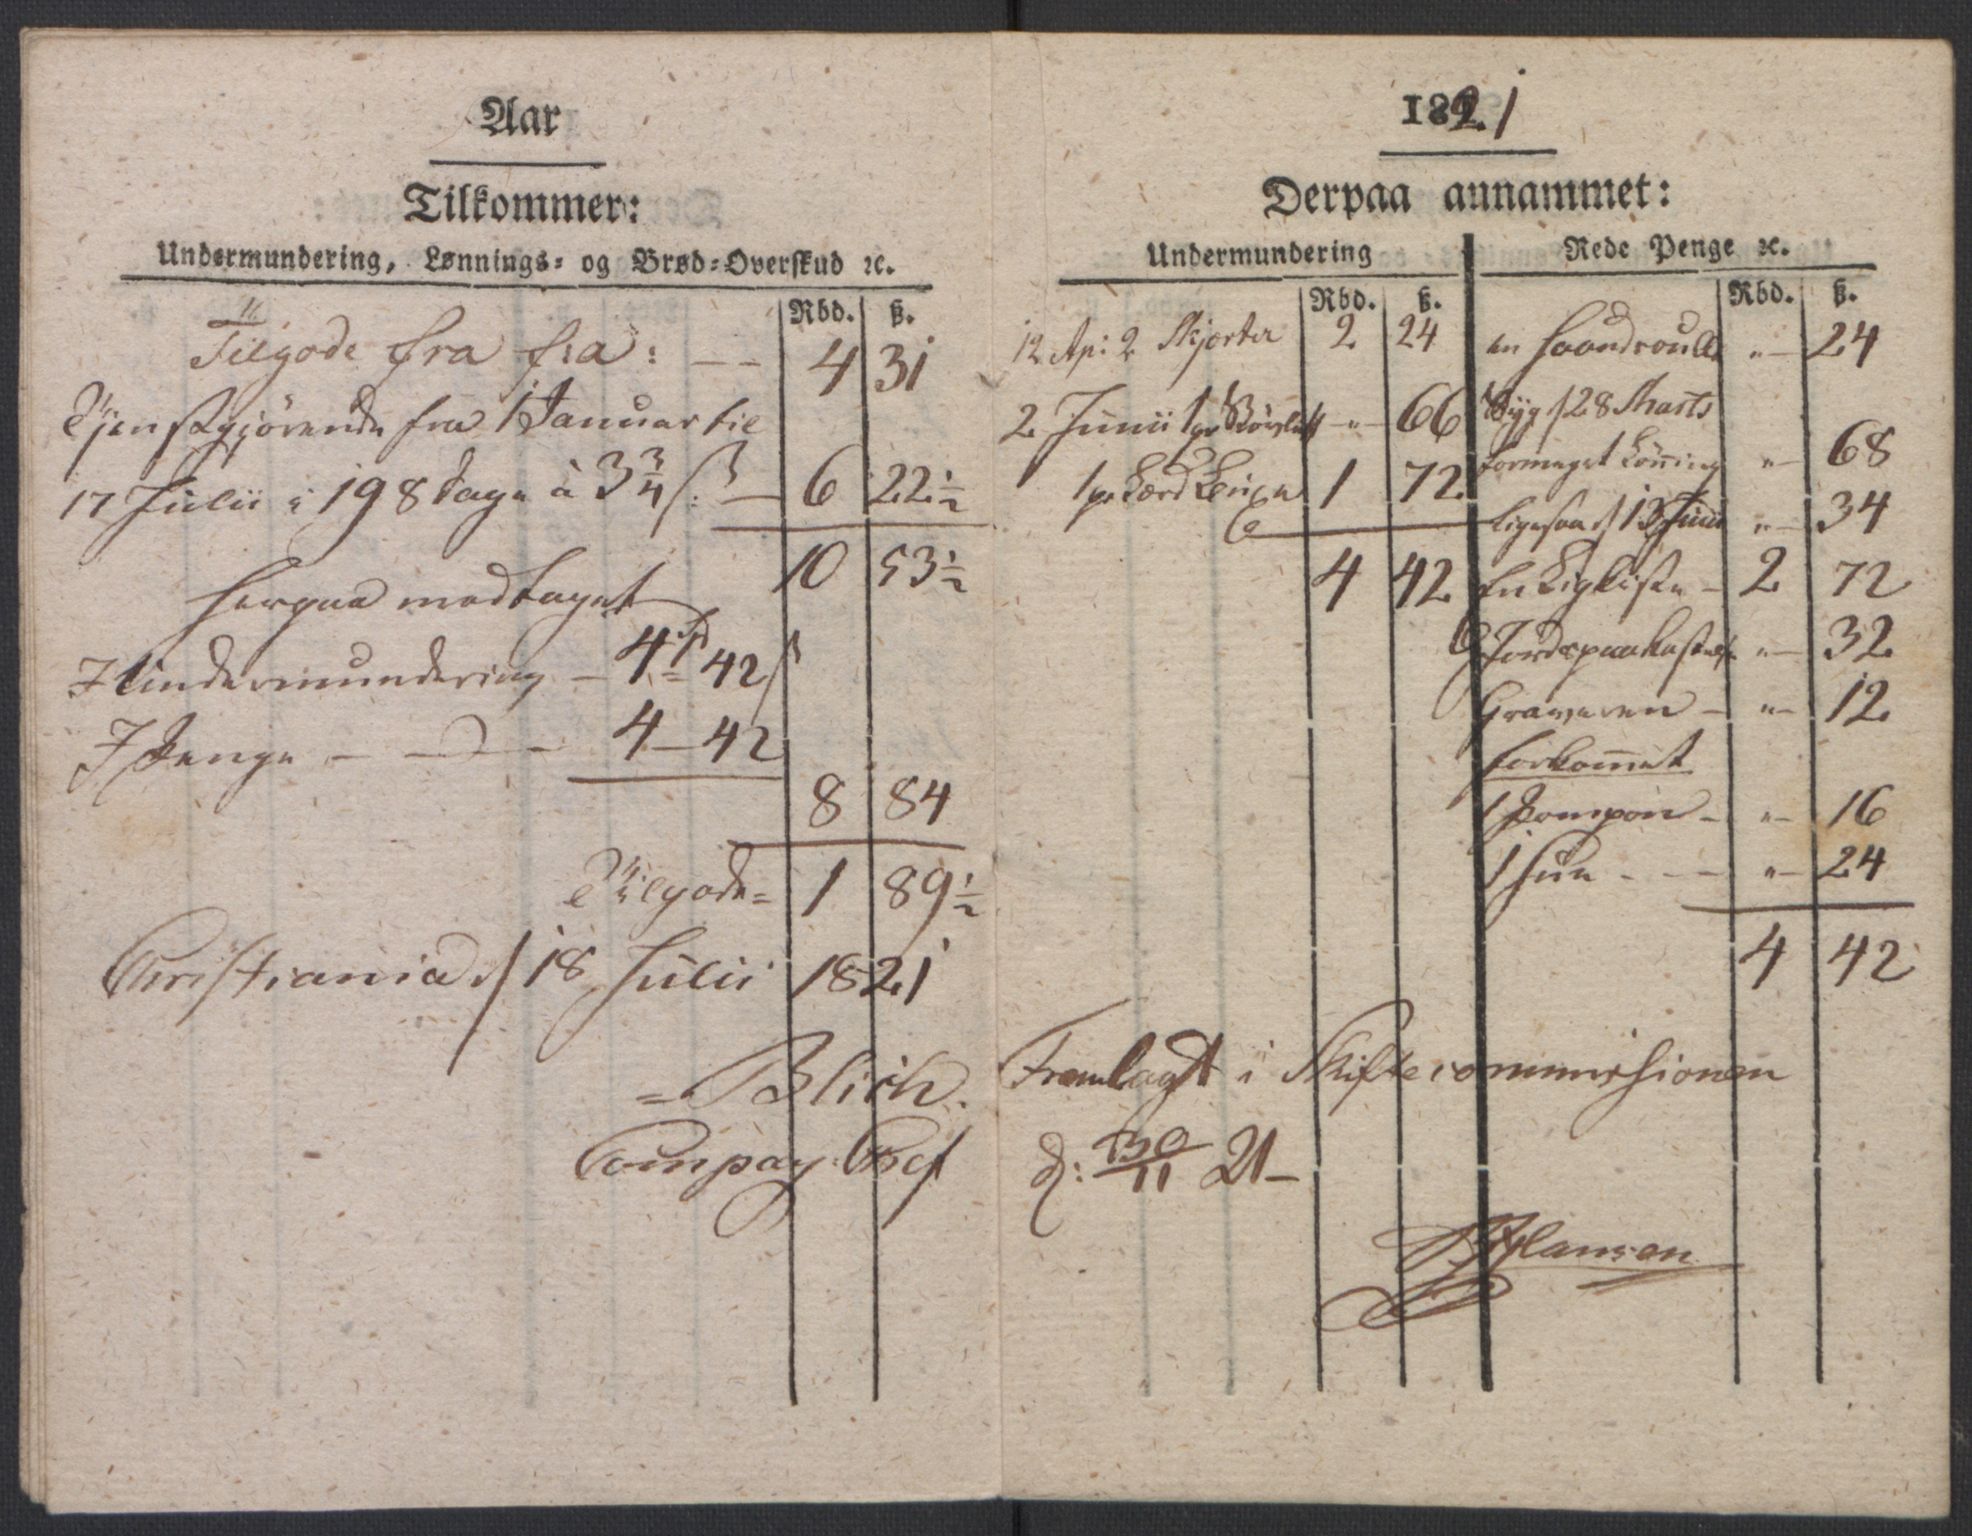 Aar
Tilkommer:
Undermundering, Lønnings- og Brød-Overskud ꝛc.
Rbd. ß.
Tilgode fra fra: 4 31
Tjenstgjørende fra 1 Januar til
17 Julii i 198 Dage à 3 3/4 ß: 6 22 1/2
10 53 1/2
Herpaa modtaget
I Undermundering 4 42 ß
I Penge 4 42
8 84
Tilgode 1 89 1/2
Christiania d/ 18 Julii 1821
Blich.
Compag: Chef
1821
Derpaa annammet:
Undermundering
Rbd. ß.
12 Ap: 2 Skjorter 2 24
2 Junii 1 pr 66
1 pr 1 72
4 42
Rede Penge ꝛc.
Rbd. ß.
en " 24
Syg d/ 28 Marts
formeget Lönning " 68
Ligesaa d/ 13 Junii " 34
En Ligkiste 2 72
Jordspaakastelse " 32
Graveren " 12
forkommet
1 Pompon " 16
1 Hue " 24
4 42
Fremlagt i Skiftecommissionen
d: 30/11 21
Hansen